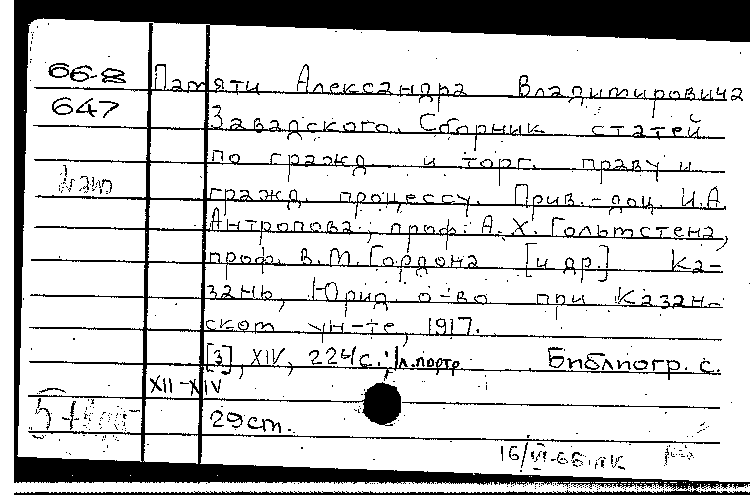 66-8 Памяти Александра Владимировича
647 Завадского. Сборник статей
по гражд. и торг. праву и
гражд. процессу. Прив.-доц. И.А.
Антропова, проф. А.Х. Гольмстена,
проф. В.М. Гордона [и др.] Ка-
зань, Юрид. о-во при Казан-
ском ун-те, 1917.
[3], XIV, 224 с.; 1 л. портр. Библиогр. с.
XII-XIV
29 см.
16/VI-66 лк